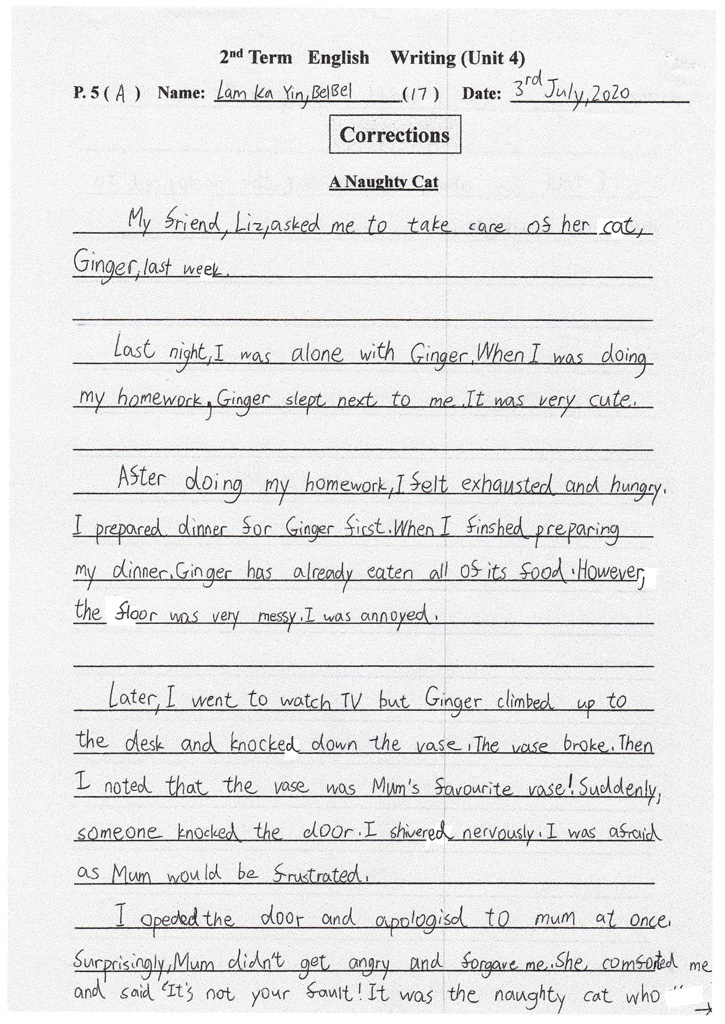 2nd Term English Writing (Unit 4)
P. 5 ( A ) Name: Lam Ka Yin, BelBel (17) Date: 3rd July, 2020
Corrections
A Naughty Cat
My friend, Liz, asked me to take care of her cat,
Ginger, last week.
Last night, I was alone with Ginger. When I was doing
my homework, Ginger slept next to me. It was very cute.
After doing my homework, I felt exhausted and hungry.
I prepared dinner for Ginger first. When I finshed preparing
my dinner. Ginger has already eaten all of its food. However,
the floor was very messy. I was annoyed.
Later, I went to watch TV but Ginger climbed up to
the desk and knocked down the vase. The vase broke. Then
I noted that the vase was Mum's favourite vase! Suddenly,
someone knocked the door. I shivered nervously. I was afraid
as Mum would be frustrated.
I opeded the door and apologisd to mum at once.
Surprisingly, Mum didn't get angry and forgave me. She comforted me
and said "It's not your fault! It was the naughty cat who